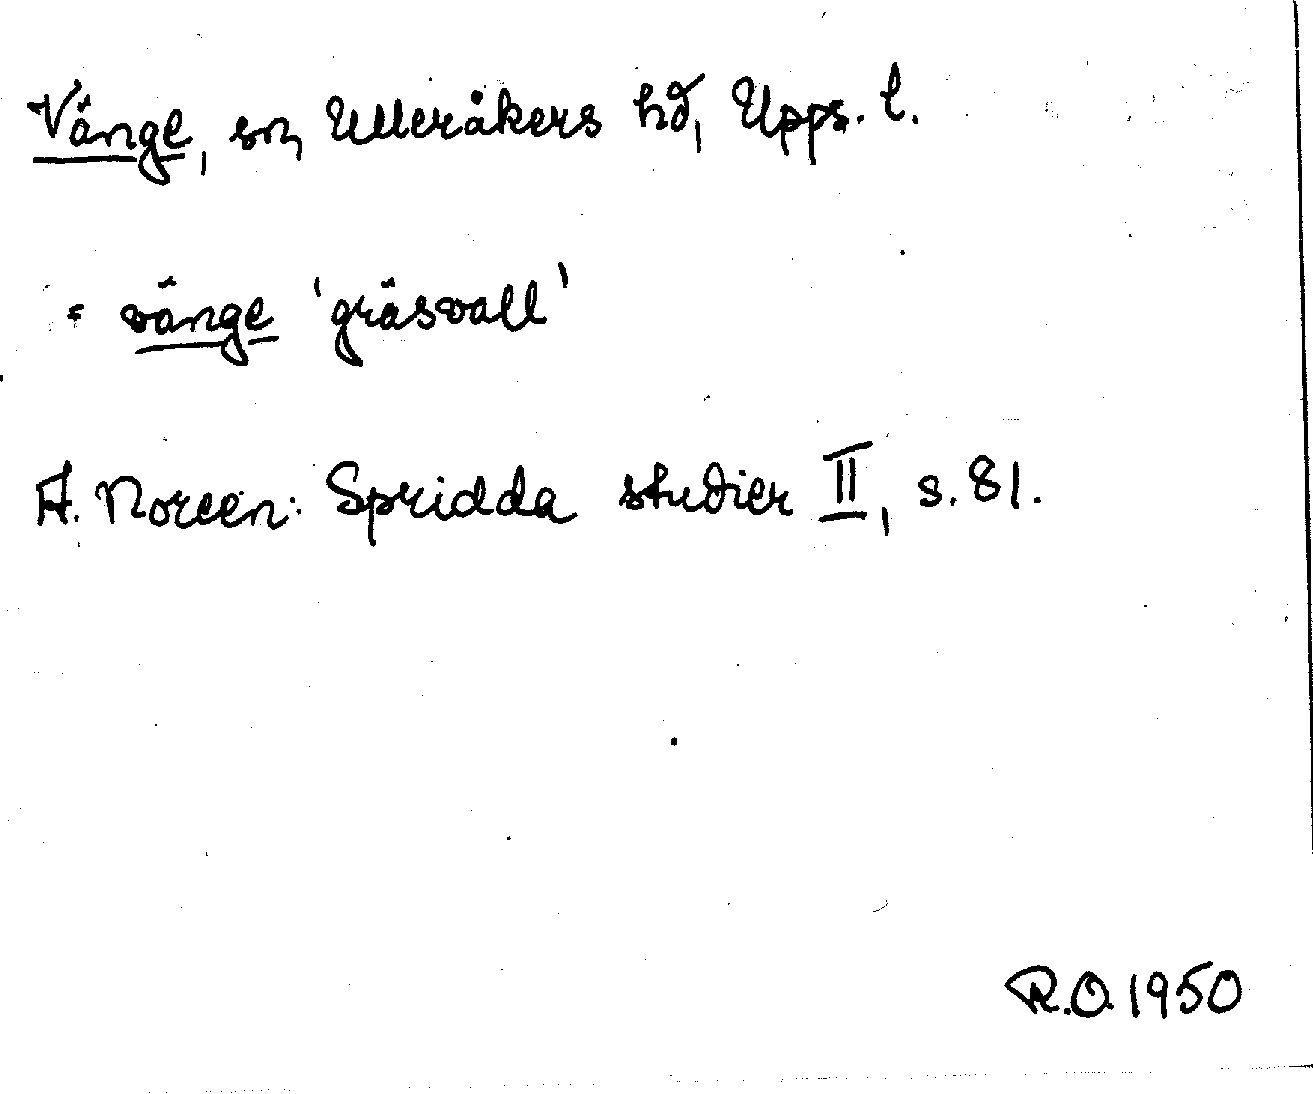 Vänge, sn, Ulleråkers hd, Upps. l.
= vänge 'gräsvall'
A. Noreen: Spridda studier II, s. 81.
R.O. 1950